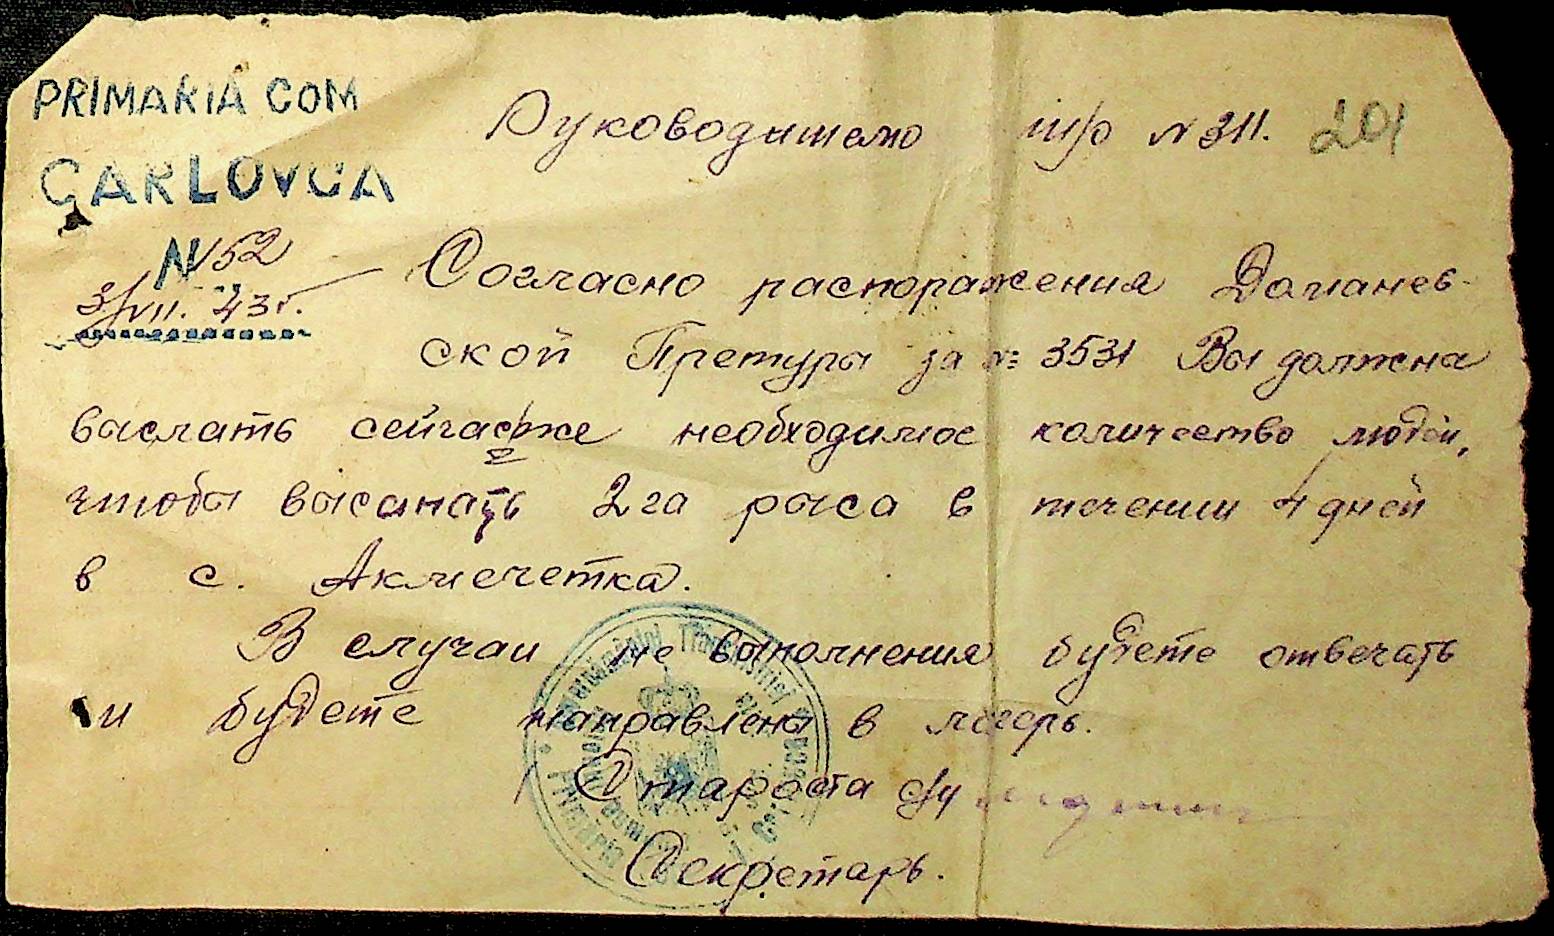 PRIMARIA COM
CARLOVCA
N 152
3/VII. 43 г.
Руководителю тр N 311.
201
Согласно распоражения Доманев-
ской Претуры за № 3531 Вы должна
выслать сейчас же необходимое количество людей,
чтобы высапать 2 га рыса в течении 4 дней
в с. Акмечетка.
В случаи не выполнения будете отвечать
и будете направлены в лагерь.
Староста
Секретарь.